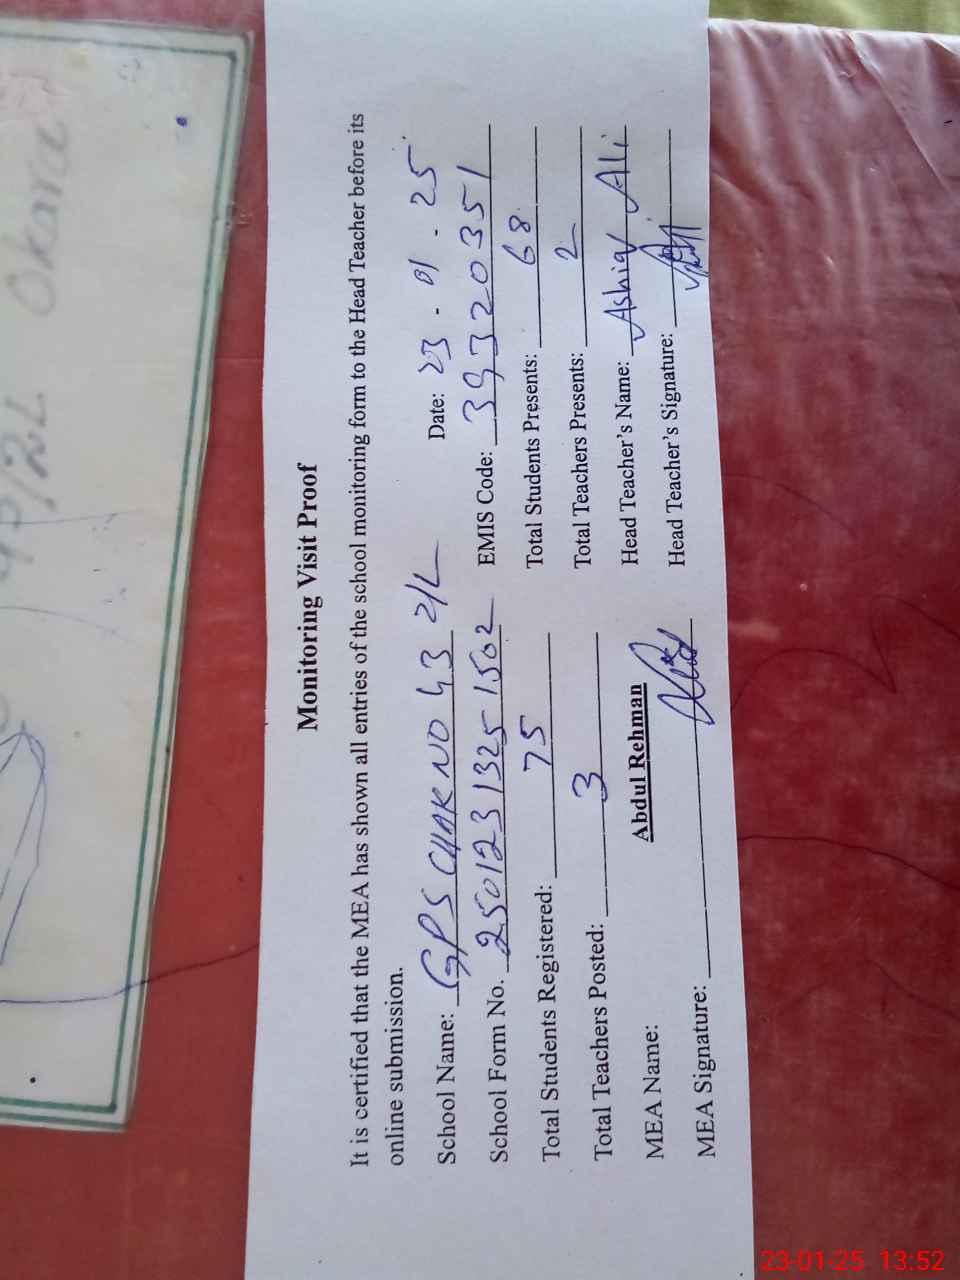 Okara
49/2L
Monitoring Visit Proof
It is certified that the MEA has shown all entries of the school monitoring form to the Head Teacher before its
online submission.
School Name: GPS CHAK NO 43 2/L Date: 23 - 01 - 25
School Form No. 25012313251502 EMIS Code: 39320351
Total Students Registered: 75 Total Students Presents: 68
Total Teachers Posted: 3 Total Teachers Presents: 2
MEA Name: Abdul Rehman Head Teacher's Name: Ashiq Ali
MEA Signature: Head Teacher's Signature:
23-01-25 13:52